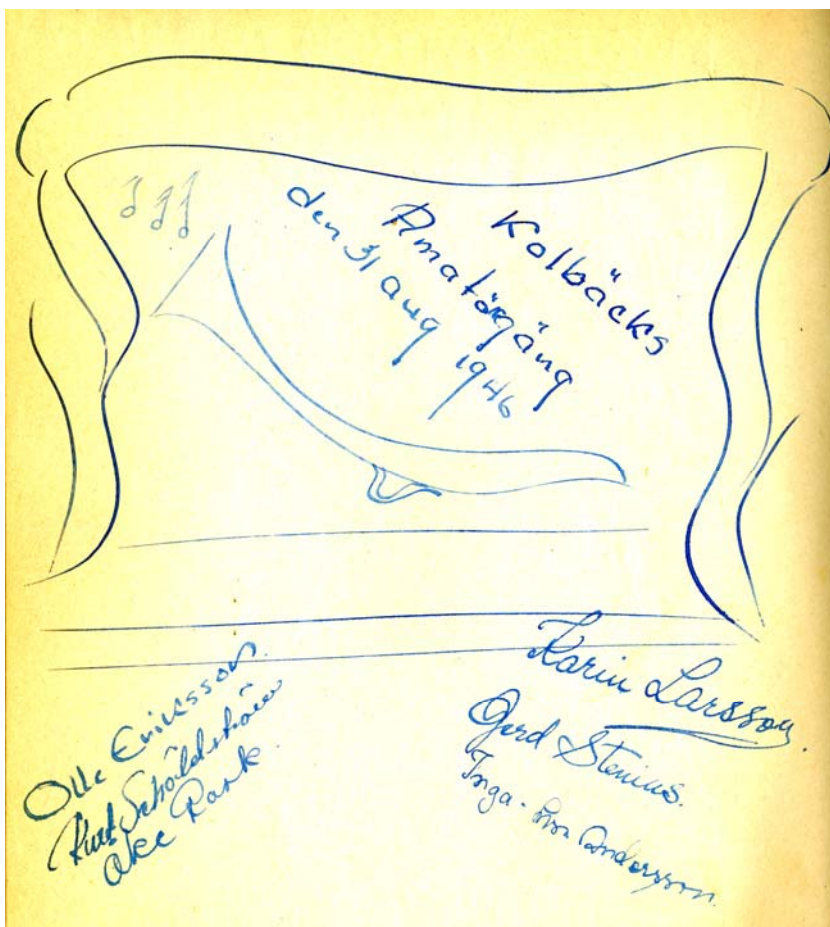 Kolbäcks
Amatörgäng
den 31 aug 1946
Olle Ericsson.
Kurt Schöldström
Åke Rask
Karin Larsson.
Gerd Stenius.
Inga-Lisa Andersson.